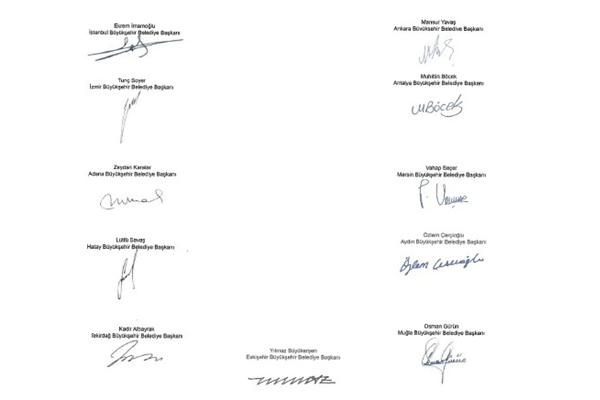 Ekrem İmamoğlu
İstanbul Büyükşehir Belediye Başkanı
Mansur Yavaş
Ankara Büyükşehir Belediye Başkanı
Tunç Soyer
İzmir Büyükşehir Belediye Başkanı
Muhittin Böcek
Antalya Büyükşehir Belediye Başkanı
MBÖCEK
Zeydan Karalar
Adana Büyükşehir Belediye Başkanı
Vahap Seçer
Mersin Büyükşehir Belediye Başkanı
Lütfü Savaş
Hatay Büyükşehir Belediye Başkanı
Özlem Çerçioğlu
Aydın Büyükşehir Belediye Başkanı
Özlem Çerçioğlu
Kadir Albayrak
Tekirdağ Büyükşehir Belediye Başkanı
Yılmaz Büyükerşen
Eskişehir Büyükşehir Belediye Başkanı
Osman Gürün
Muğla Büyükşehir Belediye Başkanı